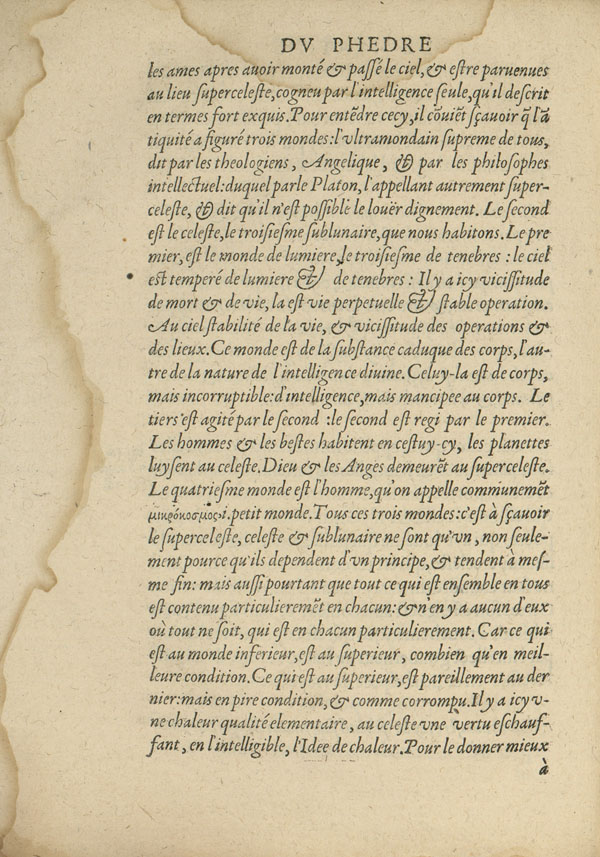 DV PHEDRE
les ames apres auoir monté & passé le ciel, & estre paruenues
au lieu superceleste, cogneu par l'intelligence seule, qu'il descrit
en termes fort exquis. Pour entẽdre cecy, il cõuiẽt sçauoir q̃ l'ã
tiquité a figuré trois mondes: l'vltramondain supreme de tous,
dit par les theologiens, Angelique, & par les philosophes
intellectuel: duquel parle Platon, l'appellant autrement super-
celeste, & dit qu'il n'est possible le louër dignement. Le second
est le celeste, le troisiesme sublunaire, que nous habitons. Le pre
mier, est le monde de lumiere, le troisiesme de tenebres: le ciel
est temperé de lumiere & de tenebres: Il y a icy vicissitude
de mort & de vie, la est vie perpetuelle & stable operation.
Au ciel stabilité de la vie, & vicissitude des operations &
des lieux. Ce monde est de la substance caduque des corps, l'au-
tre de la nature de l'intelligence diuine. Celuy-la est de corps,
mais incorruptible: d'intelligence, mais mancipee au corps. Le
tiers est agité par le second: le second est regi par le premier.
Les hommes & les bestes habitent en cestuy-cy, les planettes
luysent au celeste. Dieu & les Anges demeurẽt au superceleste.
Le quatriesme monde est l'homme, qu'on appelle communemẽt
μικρόκοσμος .i. petit monde. Tous ces trois mondes: c'est à sçauoir
le superceleste, celeste & sublunaire ne sont qu'vn, non seule-
ment pource qu'ils dependent d'vn principe, & tendent à mes-
me fin: mais aussi pourtant que tout ce qui est ensemble en tous
est contenu particulieremẽt en chacun: & n'en y a aucun d'eux
où tout ne soit, qui est en chacun particulierement. Car ce qui
est au monde inferieur, est au superieur, combien qu'en meil-
leure condition. Ce qui est au superieur, est pareillement au der
nier: mais en pire condition, & comme corrompu. Il y a icy v-
ne chaleur qualité elementaire, au celeste vne vertu eschauf-
fant, en l'intelligible, l'Idee de chaleur. Pour le donner mieux
à